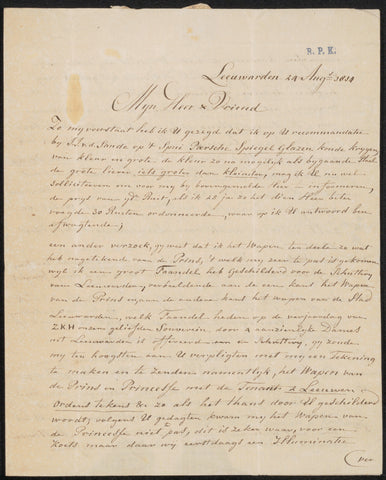 R. P. K.
Leeuwarden 24 Augt. 1814
Mijn Heer & Vriend
Zo mij voorstaat heb ik U gezegd dat ik op U recommandatie
by J. v d Sande op 't Spui Persche Spiegel Glazen konde krygen
van kleur en grote. de kleur zo na mogelijk als bygaande
de grote liever iets groter dan kleinder, mag ik U nu wel
sollisiteren om voor my by bovengemelde Heer informeren,
de prys van yd Ruit, als ik 25 ja zo het den Heer beter
30 Ruiten ordonneerde, waar op ik U antwoord ben
afwagtende;
een ander verzoek, gy weet dat ik het Wapen ten deele zo wat
heb nagetekend van de Prins, 't welk my zeer te pas is gekomen
wyl ik een groot Faandel heb Geschilderd voor de Schuttery
van Leeuwarden, verbeeldende aan de een kant het Wapen
van de Prins en aan de andere kant het wapen van de Stad
Leeuwarden, welk Faandel heden op de verjaardag van
Z.K.H onzen geliefden Souverein door 4 aanzienlyke Dames
uit Leeuwarden is offereerd aan de Schuttery, gy zoude
my ten hoogsten aan U verpligten met my een Tekening
te maken en te Zenden namentlyk, het Wapen van
de Prins en Princesse met de Tenants 2 Leeuwen
Ordens tekens & zo als het thand door U geschilderd
wordt, volgens U gedagten kwam my het Wapen van
de Princesse niet te pas, dit is zeker waar, voor een
zoets maar daar wy eerstdaags een Illuminatie
ver